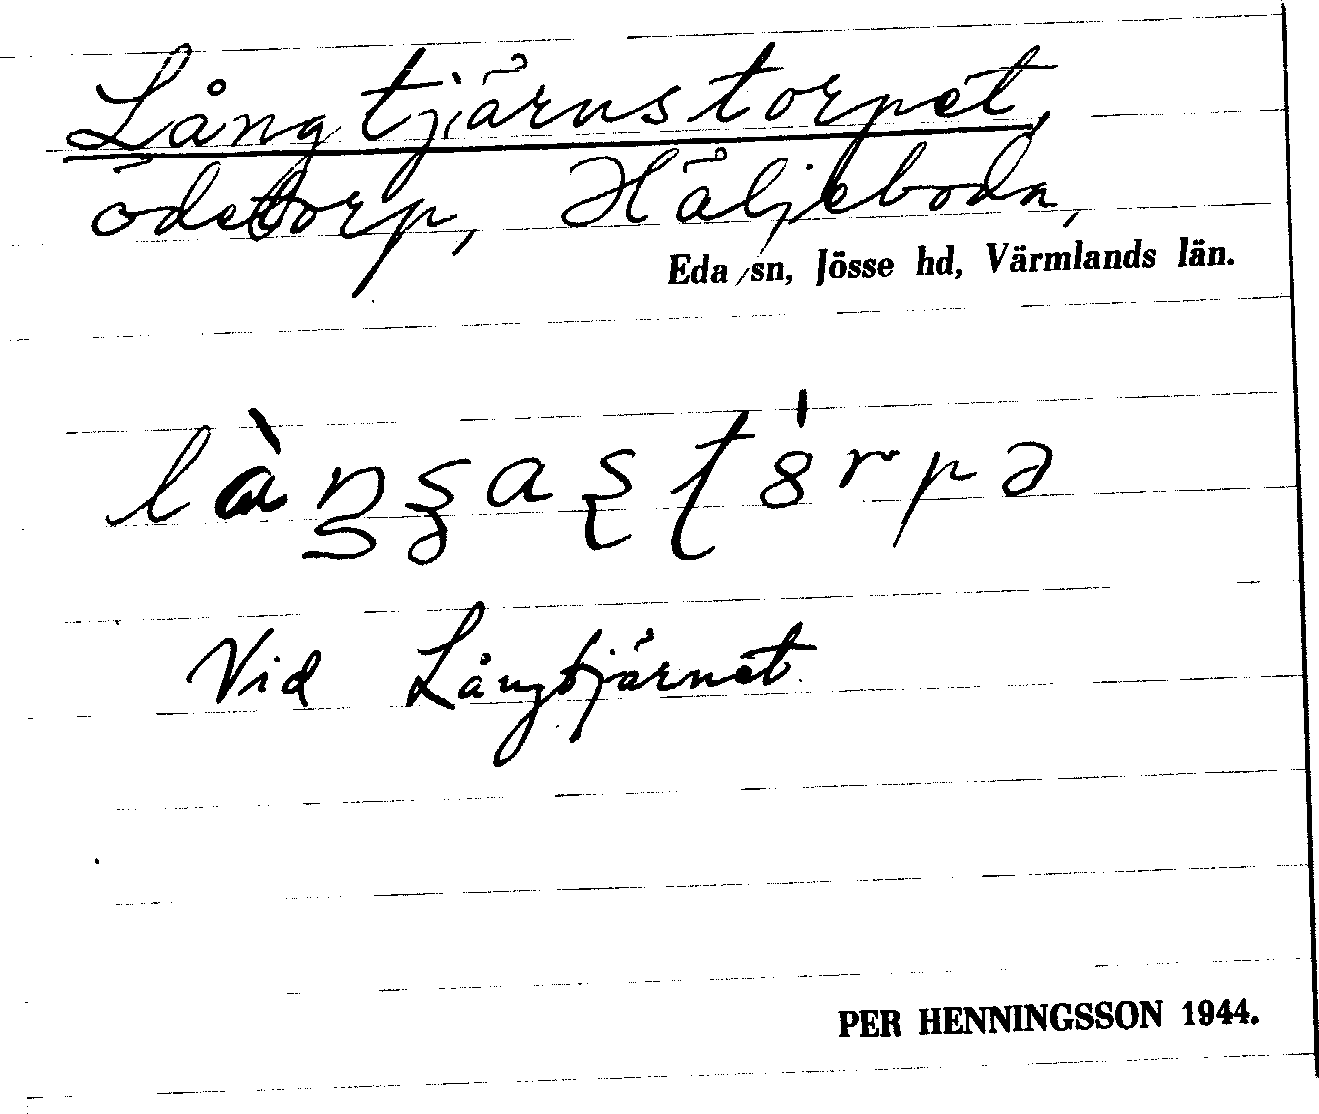 Långtjärnstorpet,
ödetorp, Häljeboda,
Eda sn, Jösse hd, Värmlands län.
Vid Långtjärnet.
PER HENNINGSSON 1944.